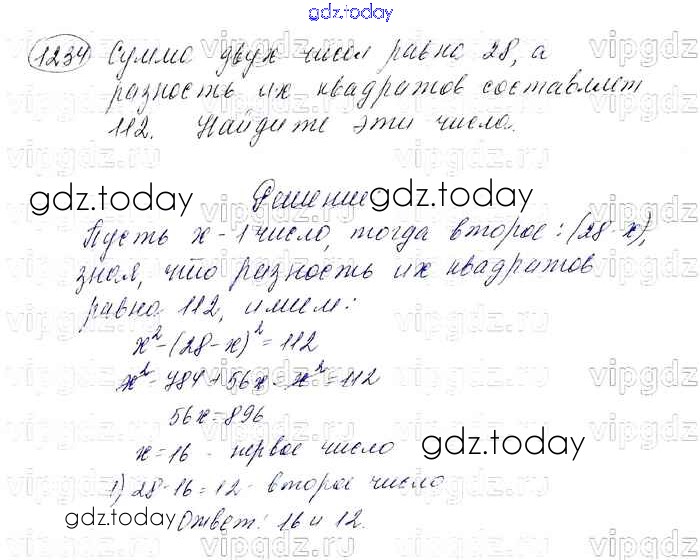 gdz.today
1234 Сумма двух чисел равна 28, а
разность их квадратов составляет
112. Найдите эти числа.
gdz.today
Решение:
Пусть x - 1 число, тогда второе: (28-x),
зная, что разность их квадратов
равна 112, имеем:
x² - (28-x)² = 112
x² - 784 + 56x - x² = 112
56x = 896
x = 16 - первое число
gdz.today
1) 28-16 = 12 - второе число
gdz.today
Ответ: 16 и 12.